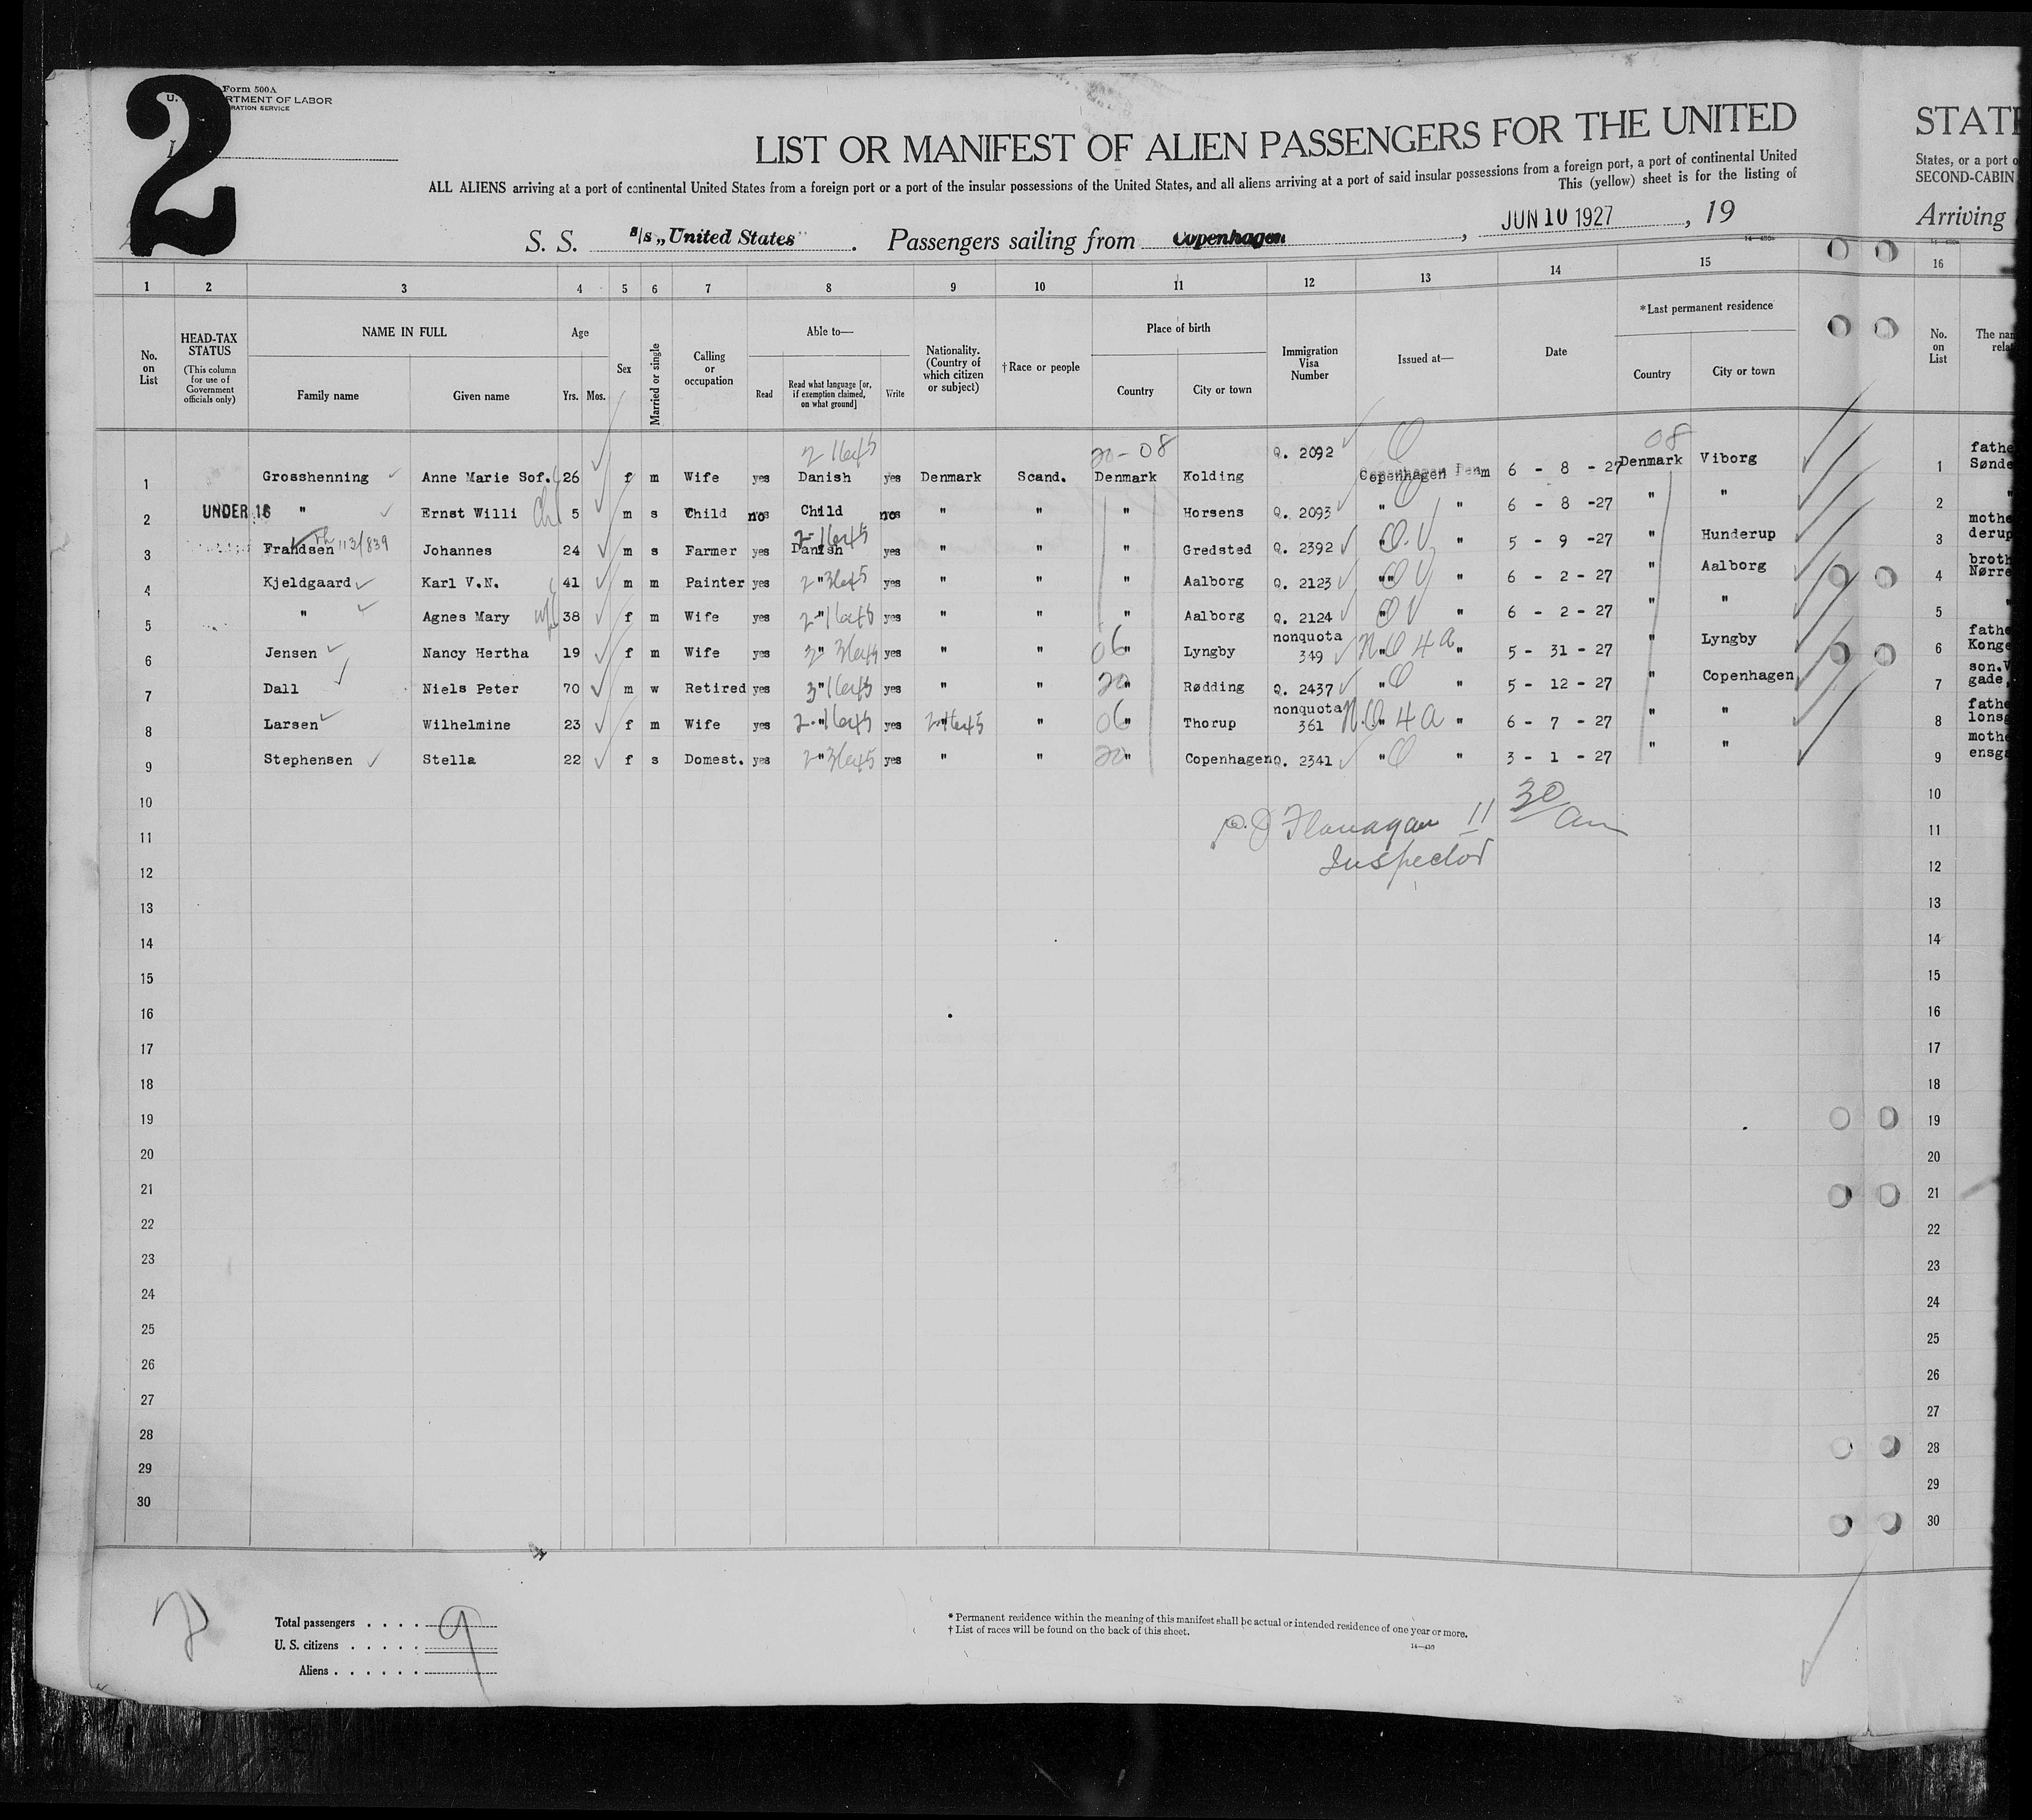 2
Form 500A
U. RTMENT OF LABOR
RATION SERVICE
LIST OR MANIFEST OF ALIEN PASSENGERS FOR THE UNITED
ALL ALIENS arriving at a port of continental United States from a foreign port or a port of the insular possessions of the United States, and all aliens arriving at a port of said insular possessions from a foreign port, a port of continental United
This (yellow) sheet is for the listing of
S. S. s/s „United States" . Passengers sailing from Copenhagen , JUN 10 1927 , 19
STAT
States, or a port o
SECOND-CABIN
Arriving
1 2 3 4 5 6 7 8 9 10 11 12 13 14 15 16
No. on List
HEAD-TAX STATUS (This column for use of Government officials only)
NAME IN FULL Family name Given name
Age Yrs. Mos.
Sex
Married or single
Calling or occupation
Able to— Read Read what language [or, if exemption claimed, on what ground] Write
Nationality. (Country of which citizen or subject)
†Race or people
Place of birth Country City or town
Immigration Visa Number
Issued at—
Date
*Last permanent residence Country City or town
No. on List
The nam
rela
20-08 08
1 Grosshenning Anne Marie Sof. 26 f m Wife yes Danish yes Denmark Scand. Denmark Kolding Q. 2092 Copenhagen Denm 6 - 8 - 27 Denmark Viborg 1 fathe Sønde
2 UNDER 16 " Ernst Willi 5 m s Child no Child no " " " Horsens Q. 2093 " " 6 - 8 -27 " " 2 "
3 Frandsen 113/839 Johannes 24 m s Farmer yes Danish yes " " " Gredsted Q. 2392 " " 5 - 9 -27 " Hunderup 3 mothe derup
4 Kjeldgaard Karl V.N. 41 m m Painter yes " yes " " " Aalborg Q. 2123 "" " 6 - 2 - 27 " Aalborg 4 broth Nørre
5 " Agnes Mary wife 38 f m Wife yes " yes " " " Aalborg Q. 2124 " " 6 - 2 - 27 " " 5 "
6 Jensen Nancy Hertha 19 f m Wife yes " yes " " 06 " Lyngby nonquota 349 " " 5 - 31 - 27 " Lyngby 6 fathe Konge
7 Dall Niels Peter 70 m w Retired yes " yes " " 20 " Rødding Q. 2437 " " 5 - 12 - 27 " Copenhagen 7 son.V gade,
8 Larsen Wilhelmine 23 f m Wife yes " yes " " 06 " Thorup nonquota 361 " " 6 - 7 - 27 " " 8 fathe lonsg
9 Stephensen Stella 22 f s Domest. yes " yes " " 20 " Copenhagen Q. 2341 " " 3 - 1 - 27 " " 9 mothe ensga
10 10
11 Flanagan 11 30 am 11
12 Inspector 12
13 13
14 14
15 15
16 16
17 17
18 18
19 19
20 20
21 21
22 22
23 23
24 24
25 25
26 26
27 27
28 28
29 29
30 30
2
Total passengers . . . . 9
U. S. citizens . . . . .
Aliens . . . . . .
* Permanent residence within the meaning of this manifest shall be actual or intended residence of one year or more.
† List of races will be found on the back of this sheet.
14—430